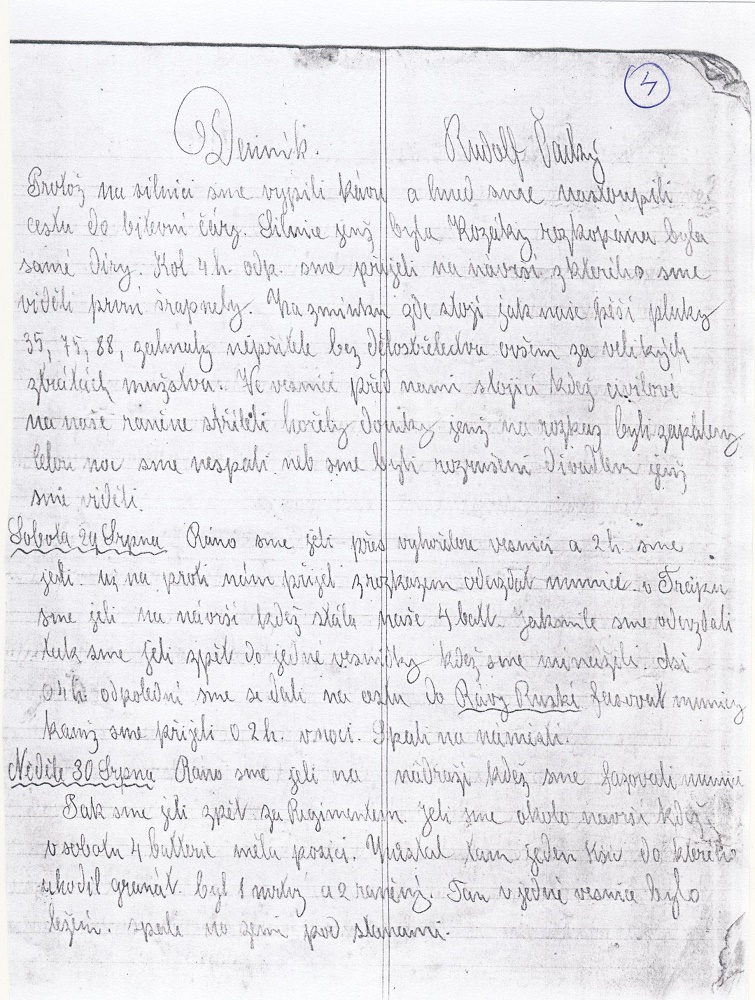 4
Denník. Rudolf Vacký
Protož na silnici sme vypili kávu a hned sme nastoupili
cestu do bitevní čáry. Silnice jenž byla Kozáky rozkopána byla
samé díry. Kol 4 h. odp. sme přijeli na návrší z kterého sme
viděli první šrapnely. Za zmínku zde stojí jak naše pěší pluky
35, 75, 88, zahnaly nepřítele bez dělostřelectva ovšem za velikých
ztrátách mužstva. Ve vesnici před nami stojící kdež civilove
na naše raněne stříleli hořely domky jenž na rozkaz byli zapáleny
Celou noc sme nespali neb sme byli rozrušeni divadlem jenž
sme viděli.
Sobota 29 Srpna Ráno sme jeli přes vyhořelou vesnici a 2 h. sme
jeli. už na proti nám přijel z rozkazem odevzdat munici. v
sme jeli na návrší kdež stála naše 4 batt. Jakmile sme odevzdali
tak sme jeli zpět do jedné vesničky kdež sme menažili. Asi
o 4 h odpoledni sme se dali na cestu do Rávy Ruské fasovat munici
kamž sme přijeli o 2 h. v noci. Spali na naměsti.
Neděle 30 Srpna Ráno sme jeli na nádraži kdež sme fasovali munici
Pak sme jeli zpět za Regimentem Jeli sme okolo navrší kdež
v sobotu 4 batterie měla posici. Zustal tam jeden kůň do kterého
uhodil granát. byl 1 mrtvý a 2 raněný. Tam v jedné vesnice bylo
ležení. spali na zemi pod stanami.